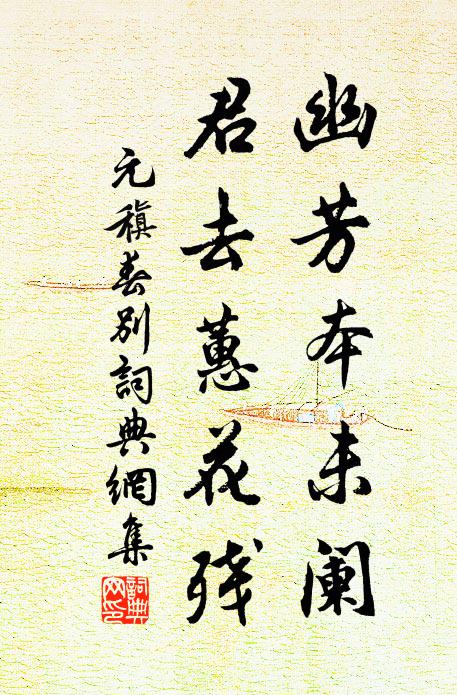 幽芳本未阑
君去蕙花残
元稹春别詞典網集
詞典网印